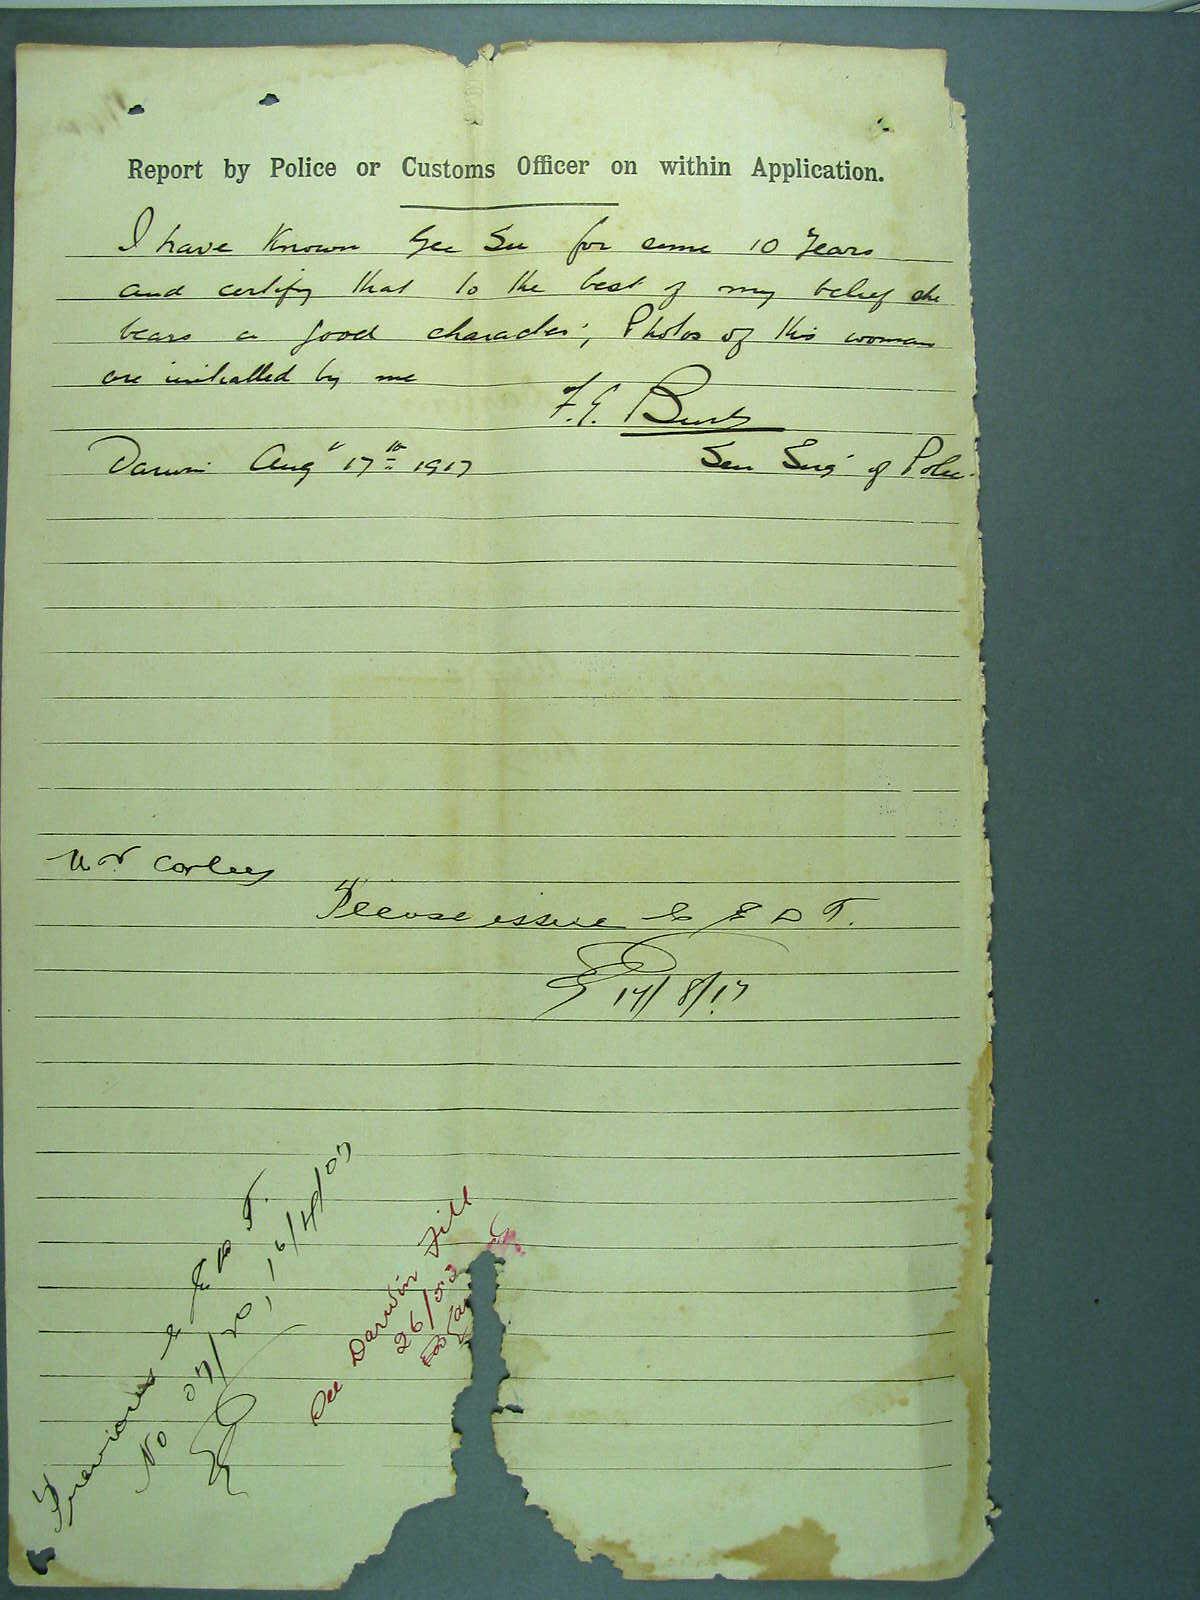 Report by Police or Customs Officer on within Application.
I have known Gee Su for some 10 Years
and certify that to the best of my belief she
bears a good character; Photos of this woman
are initialled by me
F.G. Burt
Darwin Augt 17th 1917
Sen Serg of Police
Mr Corlees
Please issue C E D T.
17/8/17
Previous C E D T.
No 07/20, 16/4/07
See Darwin File
26/53